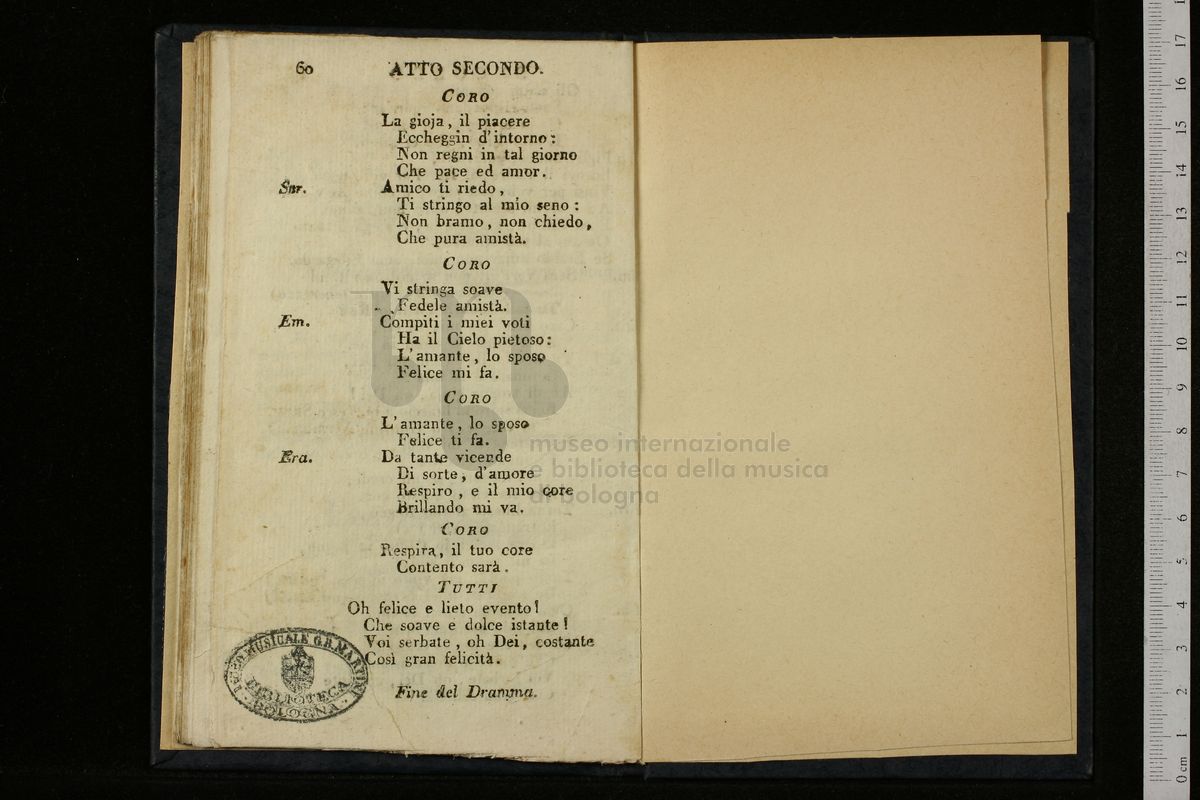 60 ATTO SECONDO.
CORO
La gioja, il piacere
Eccheggin d'intorno:
Non regni in tal giorno
Che pace ed amor.
Snr. Amico ti riedo,
Ti stringo al mio seno:
Non bramo, non chiedo,
Che pura amistà.
CORO
Vi stringa soave
Fedele amistà.
Em. Compiti i miei voti
Ha il Cielo pietoso:
L'amante, lo sposo
Felice mi fa.
CORO
L'amante, lo sposo
Felice ti fa.
Era. Da tante vicende
Di sorte, d'amore
Respiro, e il mio core
Brillando mi va.
CORO
Respira, il tuo core
Contento sarà.
TUTTI
Oh felice e lieto evento!
Che soave e dolce istante!
Voi serbate, oh Dei, costante
Così gran felicità.
Fine del Dramma.
LICEO MUSICALE G.B. MARTINI
BIBLIOTECA
BOLOGNA
museo internazionale
e biblioteca della musica
di bologna
0 cm 1 2 3 4 5 6 7 8 9 10 11 12 13 14 15 16 17